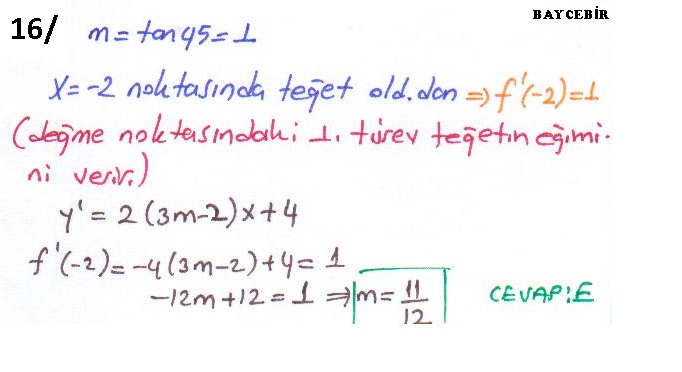 BAYCEBİR
16/ m = tan 45 = 1
x = -2 noktasında teğet old.dan ⇒ f'(-2) = 1
(değme noktasındaki 1. türev teğetin eğimi-
ni verir.)
y' = 2(3m-2)x+4
f'(-2) = -4(3m-2)+4 = 1
-12m+12 = 1 ⇒ m = 11/12
CEVAP:E